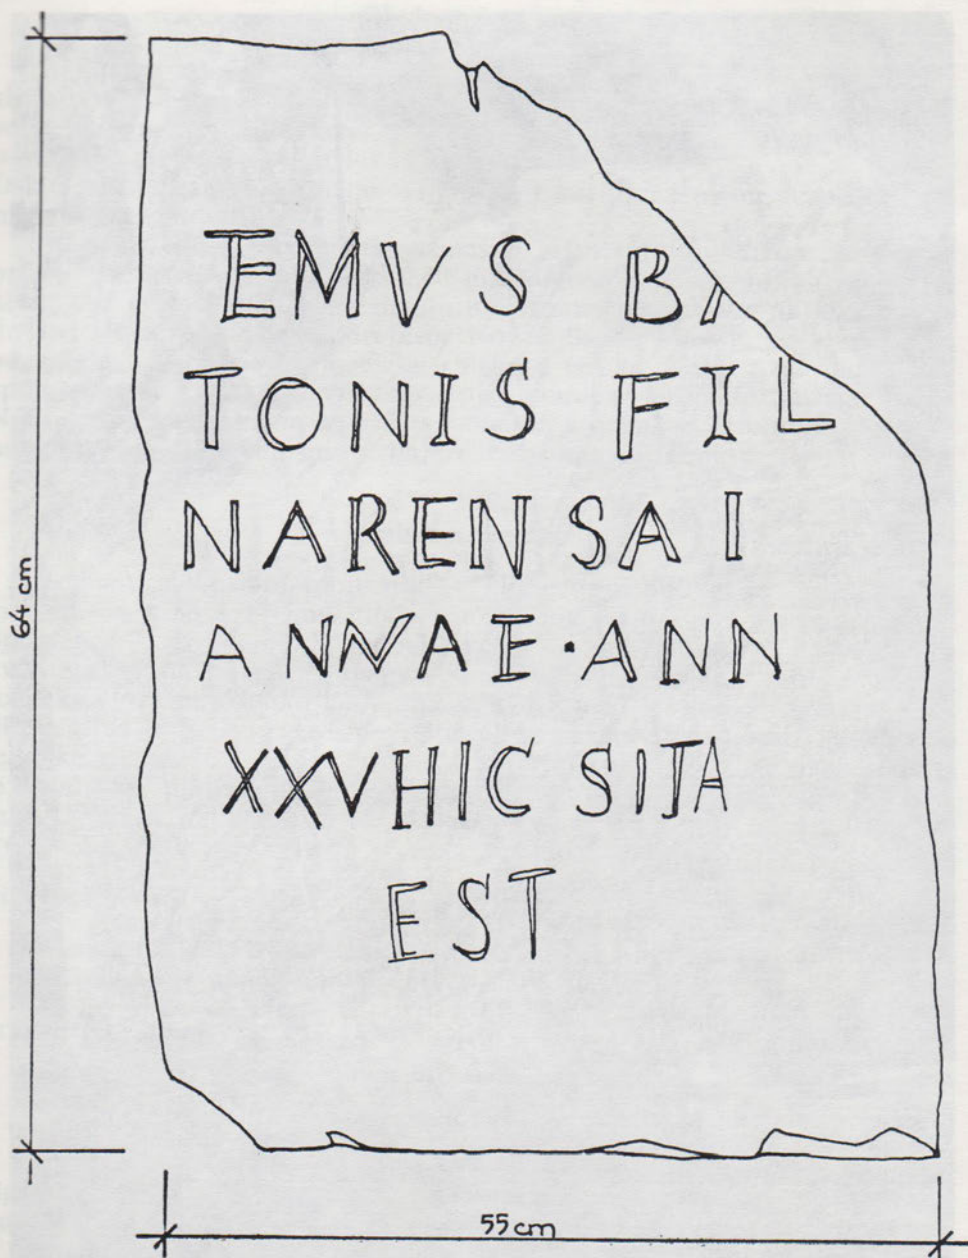 EMVS BA
TONIS FIL
NARENSAI
ANNAE·ANN
XXVHIC SITA
EST
64 cm
55 cm